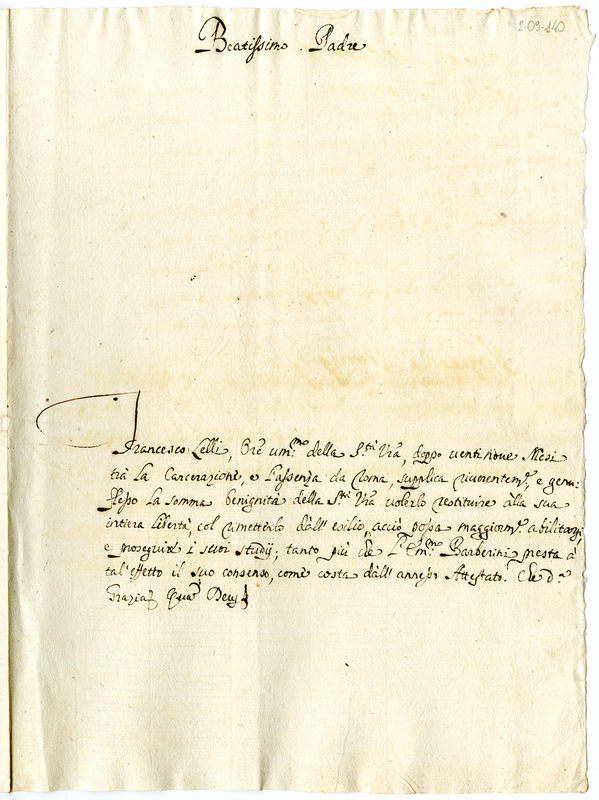 2-09-140
Beatissimo Padre
Francesco Lelli, Ore um.mo della S.tà Vrã, doppo ventinove Mesi
trà la Carcerazione, e l'assenza da Roma, supplica riverentem.e, e genu:
flesso la somma benignità della S.tà Vrã volerlo restituire alla sua
intiera libertà, col rimetterlo dall' esilio, acciò possa maggiorm.e abilitarsi,
e proseguire i suoi studij; tanto più che l' Em.mo Barberini presta à
tal' effetto il suo consenso, come costa dall' annesso Attestato. Che d.a
Grazia Quam Deus